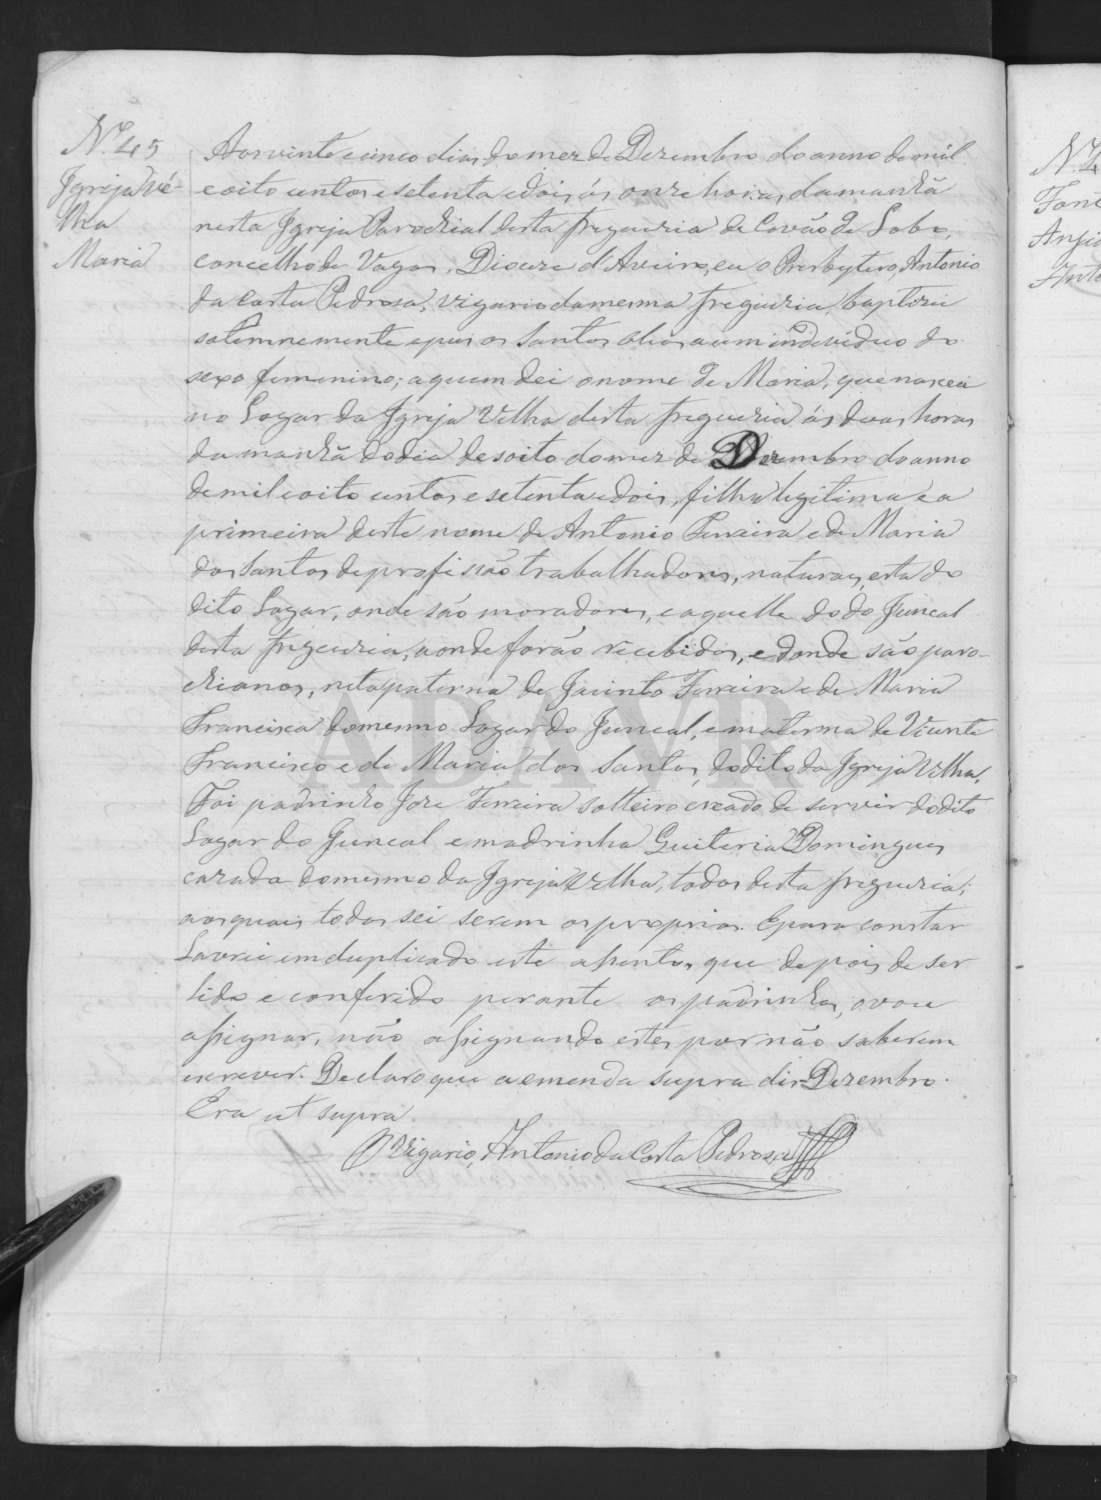 Nº 45
Igreja Vé-
lha
Maria
Aos vinte e cinco dias do mez de Dezembro do anno de mil
e oito centos e setenta e dois, ás onze horas da manhã
nesta Igreja Parochial desta freguezia de Covão de Lobo,
concelho de Vagos, Diocese d'Aveiro, eu o Presbytero, Antonio
da Costa Pedrosa, vigario da mesma freguezia, baptizei
solemnemente e puz os Santos oleos a um individuo do
sexo femenino; a quem dei o nome de Maria, que nasceu
no Logar da Igreja Velha desta freguezia ás duas horas
da manhã do dia desoito do mez de Dezembro do anno
de mil e oito centos e setenta e dois, filha legitima e a
primeira deste nome de Antonio Ferreira e de Maria
dos Santos de profissão trabalhadores, naturaes, esta do
dito Logar, onde são moradores, e aquelle do do Juncal
desta freguezia, aonde forão recebidos, e donde são paro-
chianos, neta paterna de Jacinto Ferreira e de Maria
Francisca do mesmo Logar do Juncal, e materna de Vicente
Francisco e de Maria dos Santos, do dito da Igreja Velha.
Foi padrinho Joze Ferreira solteiro creado de servir do dito
Logar do Juncal e madrinha Guiteria Domingues
cazada do mesmo da Igreja Velha, todos desta freguezia;
aos quais todos sei serem os proprios. E para constar
Lavrei em duplicado este assento, que depois de ser
lido e conferido perante os padrinhos, o vou
assignar, não assignando estes por não saberem
escrever. Declaro que a emenda supra diz-Dezembro.
Era ut supra.
O Vigario, Antonio da Costa Pedrosa
ADAVR
Nº 4